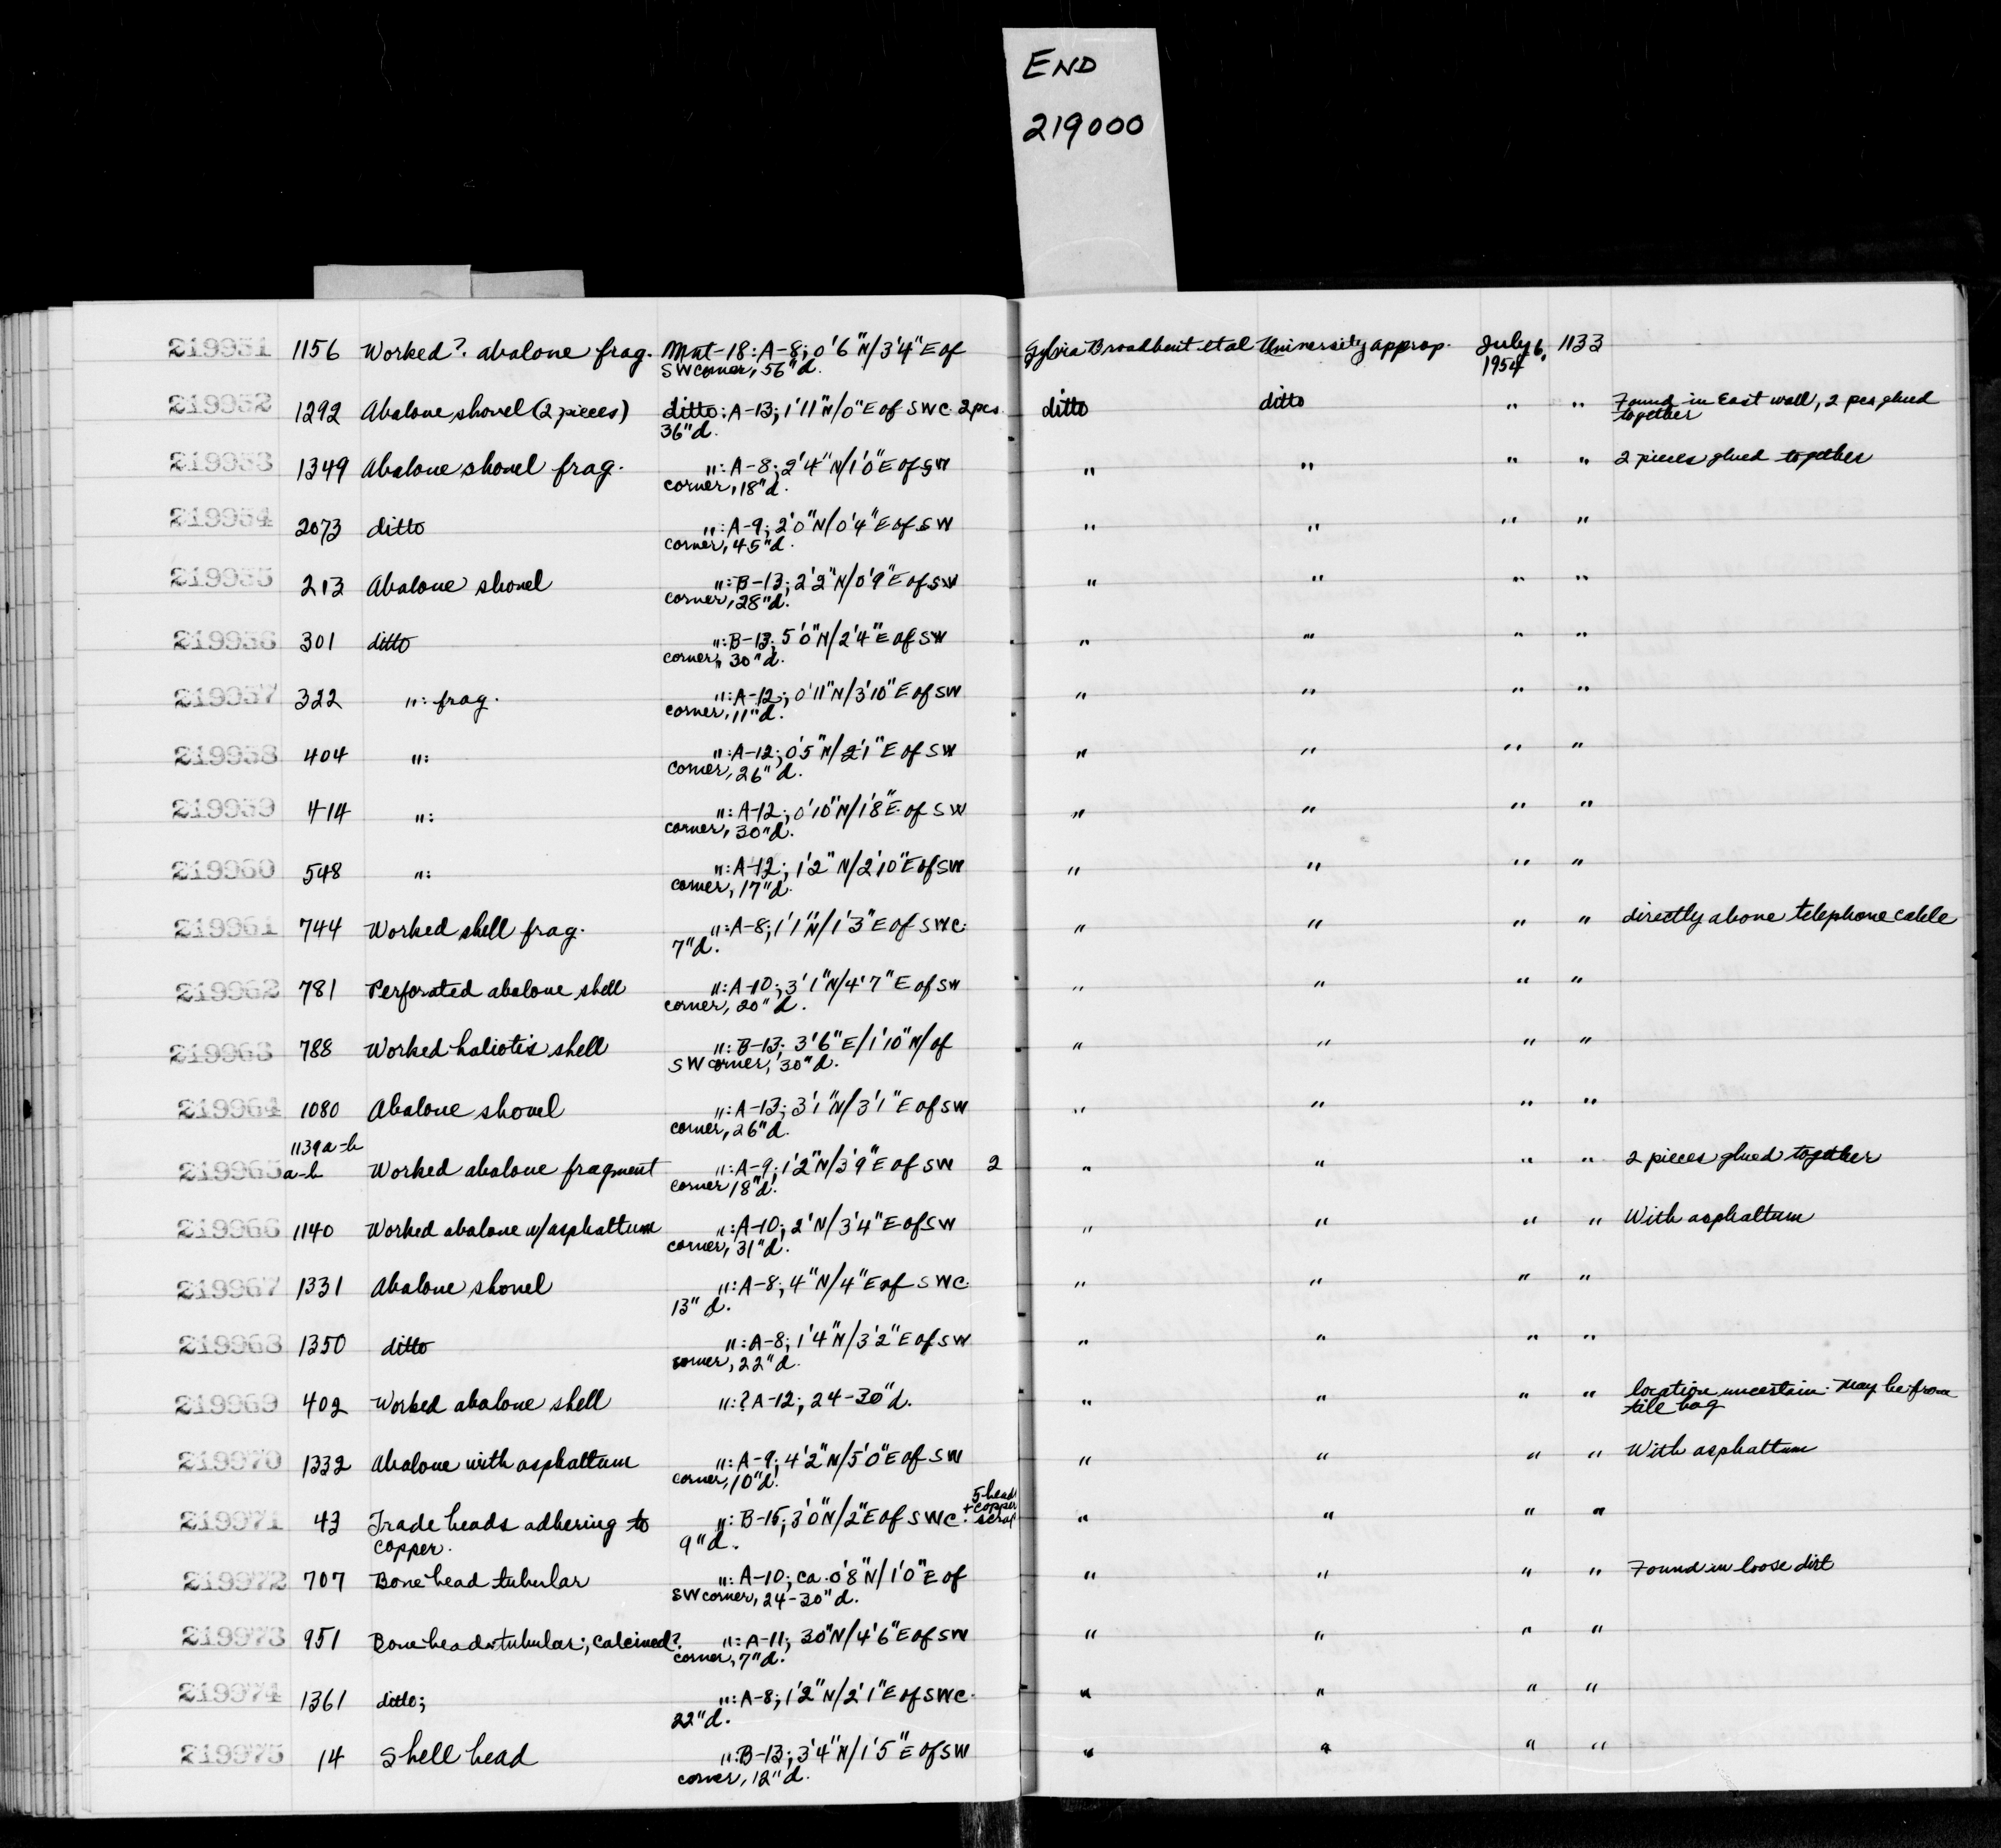 END
219000
219951 1156 Worked? abalone frag. Mnt-18: A-8; 0'6"N/3'4"E of Sylvia Broadbent et al University approp. July 6, 1133
SW corner, 56"d. 1954
219952 1292 Abalone shovel (2 pieces) ditto: A-13; 1'11"N/0"E of SWC 2 pcs. ditto ditto " " Found in East wall, 2 pcs glued
36"d. together
219953 1349 Abalone shovel frag. ": A-8; 2'4"N/1'0"E of SW " " " " 2 pieces glued together
corner, 18"d.
219954 2073 ditto ": A-9; 2'0"N/0'4"E of SW " " " "
corner, 45"d.
219955 213 Abalone shovel ": B-13; 2'2"N/0'9"E of SW " " " "
corner, 28"d.
219956 301 ditto ": B-13; 5'0"N/2'4"E of SW " " " "
corner, 30"d.
219957 322 ": frag. ": A-12; 0'11"N/3'10"E of SW " " " "
corner, 11"d.
219958 404 ": ": A-12; 0'5"N/2'1"E of SW " " " "
corner, 26"d.
219959 414 ": ": A-12; 0'10"N/1'8"E of SW " " " "
corner, 30"d.
219960 548 ": ": A-12; 1'2"N/2'10"E of SW " " " "
corner, 17"d.
219961 744 Worked shell frag. ": A-8; 1'1"N/1'3"E of SWC. " " " " directly above telephone cable
7"d.
219962 781 Perforated abalone shell ": A-10; 3'1"N/4'7"E of SW " " " "
corner, 20"d.
219963 788 Worked haliotis shell ": B-13; 3'6"E/1'10"N/of " " " "
SW corner, 30"d.
219964 1080 Abalone shovel ": A-13; 3'1"N/3'1"E of SW " " " "
corner, 26"d.
1139a-b
219965 a-b Worked abalone fragment ": A-9; 1'2"N/3'9"E of SW 2 " " " " 2 pieces glued together
corner 18"d.
219966 1140 Worked abalone w/asphaltum ": A-10; 2'N/3'4"E of SW " " " " With asphaltum
corner, 31"d.
219967 1331 Abalone shovel ": A-8; 4"N/4"E of SWC. " " " "
13"d.
219968 1350 ditto ": A-8; 1'4"N/3'2"E of SW " " " "
corner, 22"d.
219969 402 Worked abalone shell ": ? A-12; 24-30"d. " " " " location uncertain. May be from
tile bag
219970 1332 Abalone with asphaltum ": A-9; 4'2"N/5'0"E of SW " " " " With asphaltum
corner, 10"d.
219971 43 Trade beads adhering to ": B-15; 3'0"N/2"E of SWC. 5 bead + copper scrap " " " "
copper. 9"d.
219972 707 Bone bead tubular ": A-10; ca. 0'8"N/1'0"E of " " " " Found in loose dirt
SW corner, 24-30"d.
219973 951 Bone bead tubular; calcined? ": A-11; 30"N/4'6"E of SW " " " "
corner, 7"d.
219974 1361 ditto; ": A-8; 1'2"N/2'1"E of SWC. " " " "
22"d.
219975 14 Shell bead ": B-13; 3'4"N/1'5"E of SW " " " "
corner, 12"d.